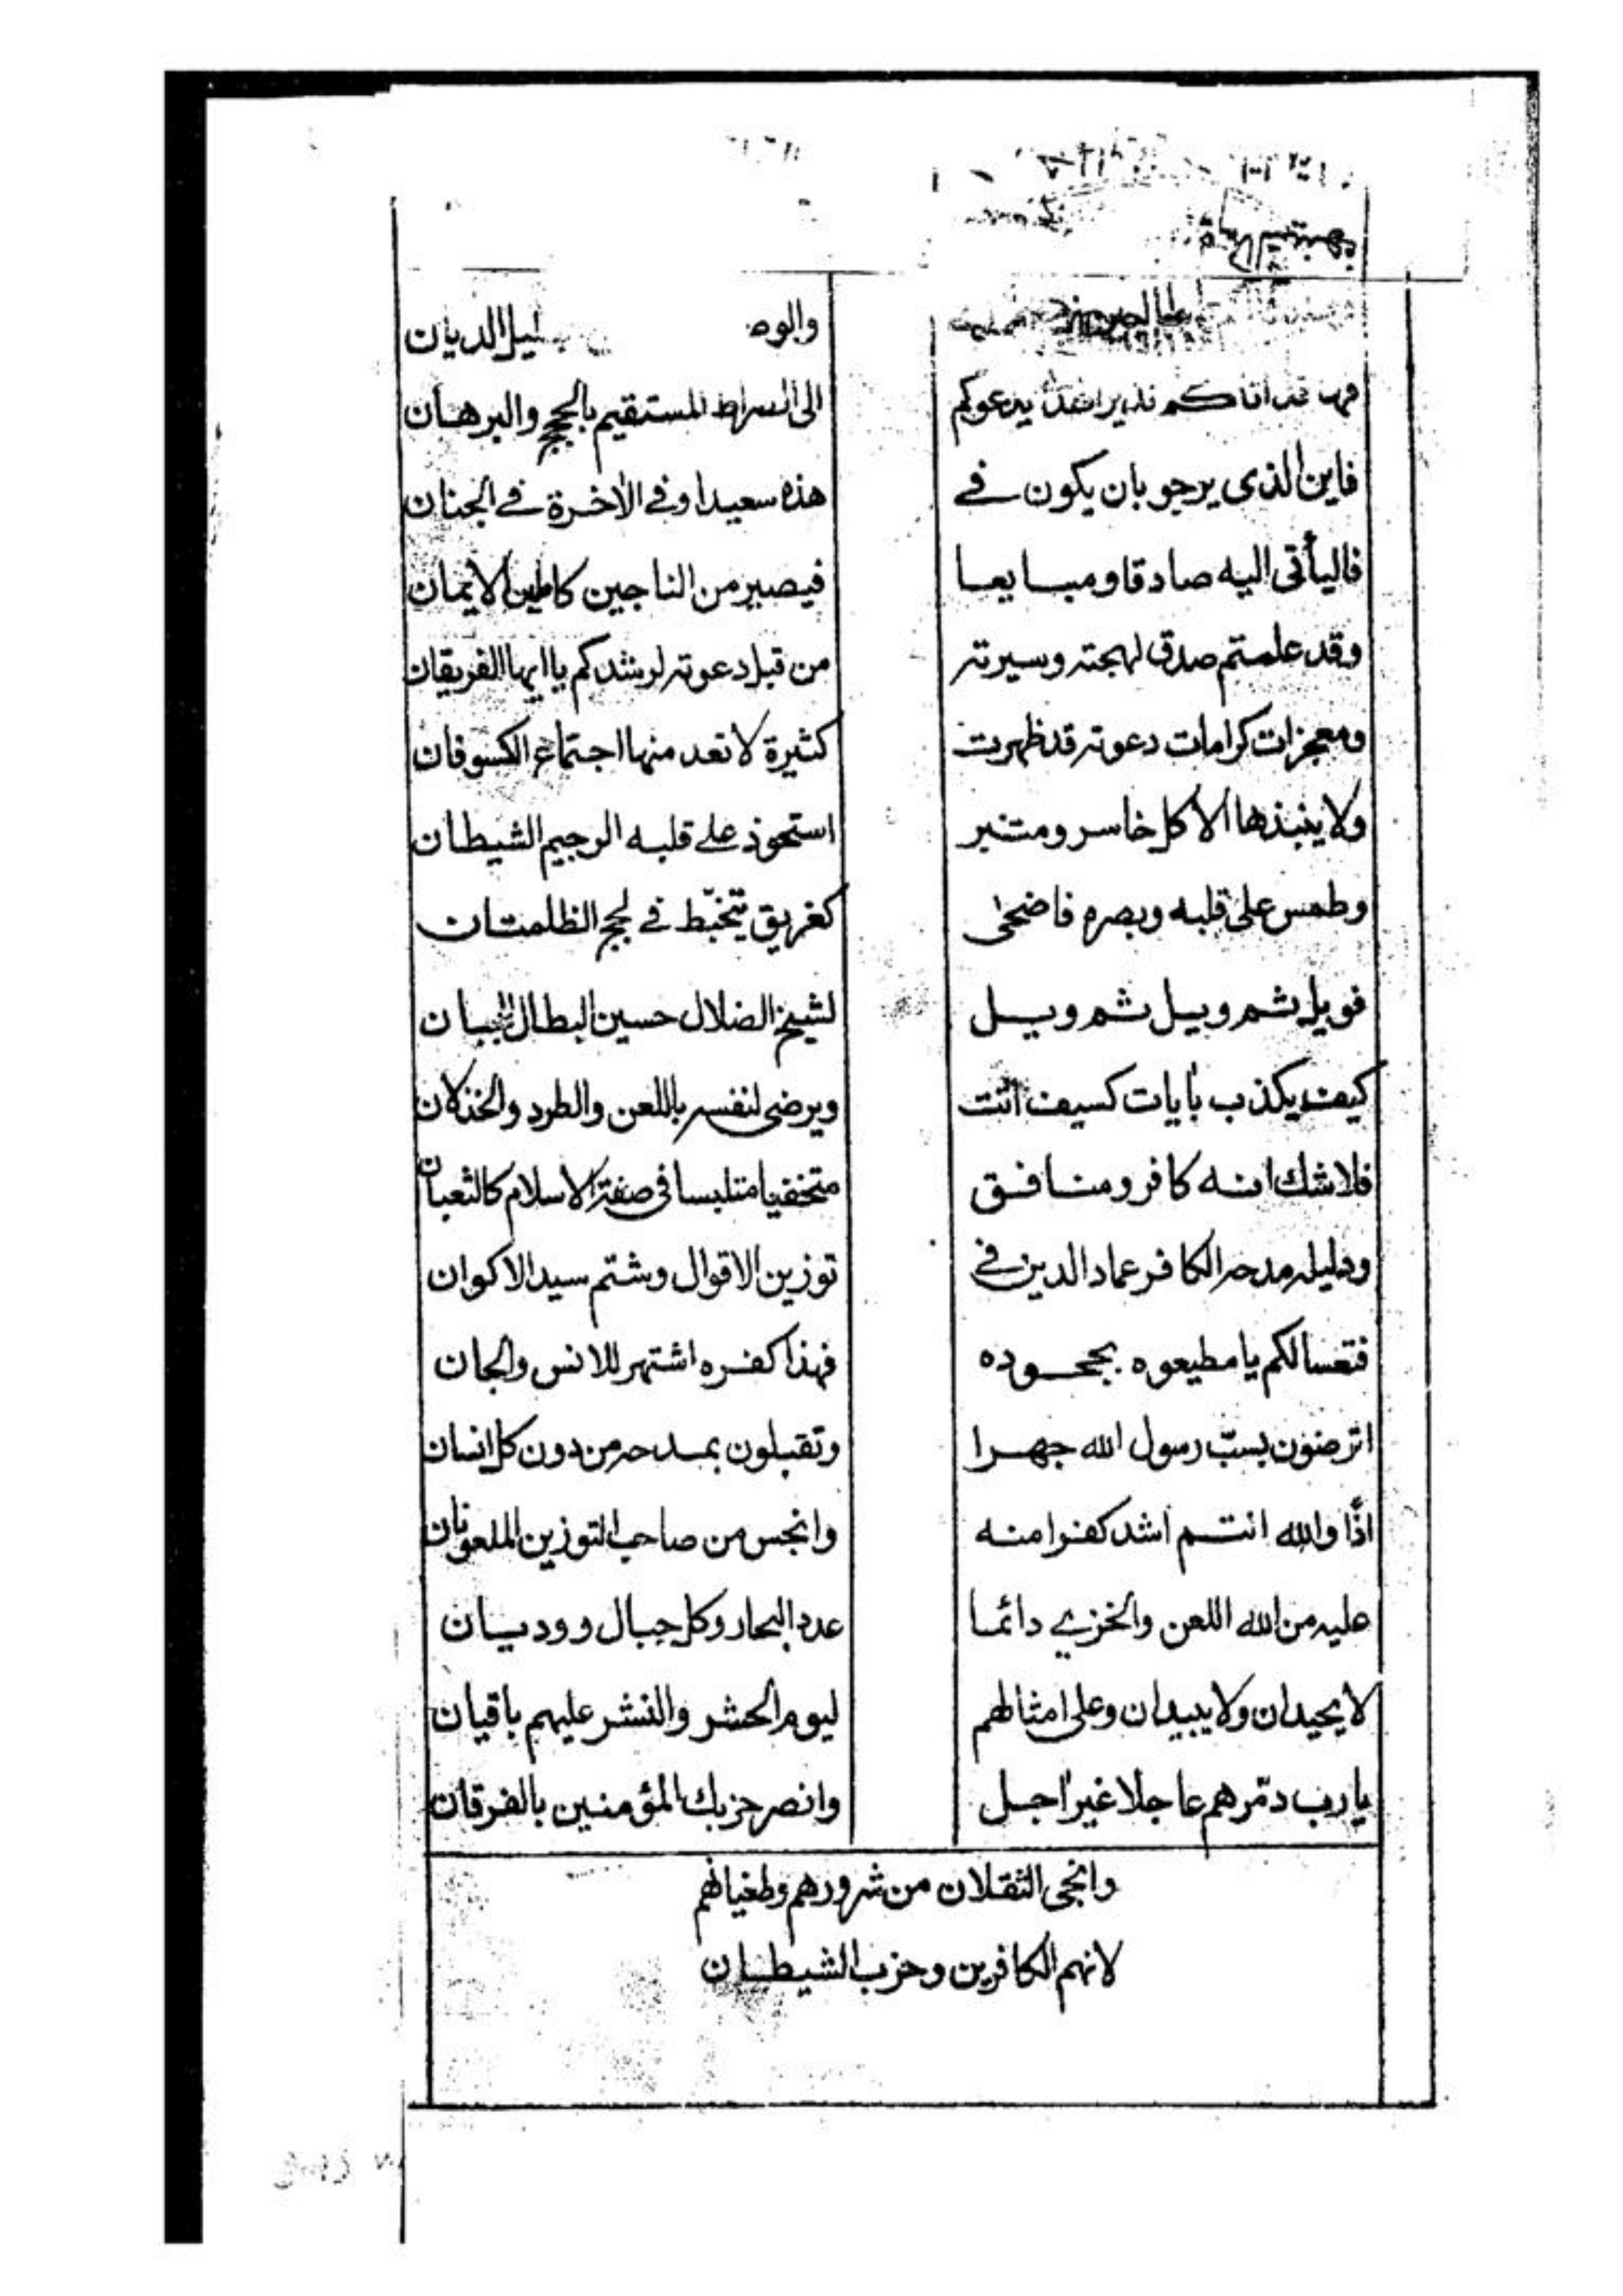 والوه ليل الديان
قد اتاكم نذير يدعوكم الى السراط المستقيم بالحجج والبرهان
فاين الذى يرجو بان يكون فے هذه سعيدا وفے الاخرة فے الجنان
فاليأتى اليه صادقا ومبايعا فيصير من الناجين كاملين الايمان
وقد علمتم صدق لهجته وسيرته من قبل دعوته لرشدكم يا ايها الفريقان
ومعجزات كرامات دعوته قد ظهرت كثيرة لا تعد منها اجتماع الكسوفان
ولا ينبذها الا كل خاسر ومتبر استحوذ علے قلبه الرجيم الشيطان
وطمس على قلبه وبصره فاضحىٰ كغريق يتخبّط فے لجج الظلمتان
فويل ثم ويل ثم ويل لشيخ الضلال حسين البطال
كيف يكذب بأيات كسيف اتت ويرضى لنفسه باللعن والطرد والخذلان
فلا شك انه كافر ومنافق متخفيا متلبسا فى صفة الاسلام كالثعبان
ودليله مدحه الكافر عماد الدين فے توزين الاقوال وشتم سيد الاكوان
فتعسا لكم يا مطيعوه بجحوده فهذا كفره اشتهر للانس والجان
اترضون بسبّ رسول الله جهرا وتقبلون بمدحه من دون كل انسان
اذًا والله انتم اشد كفرا منه وانجس من صاحب التوزين الملعونان
عليه من الله اللعن والخزے دائما عدد البحار وكل جبال ووديان
لا يحيدان ولا يبيدان وعلى امثالهم ليوم الحشر والنشر عليهم باقيان
يا رب دمّرهم عاجلا غير اجل وانصر حزبك المؤمنين بالفرقان
وانجى الثقلان من شرورهم وطغيانهم
لانهم الكافرين وحزب الشيطان